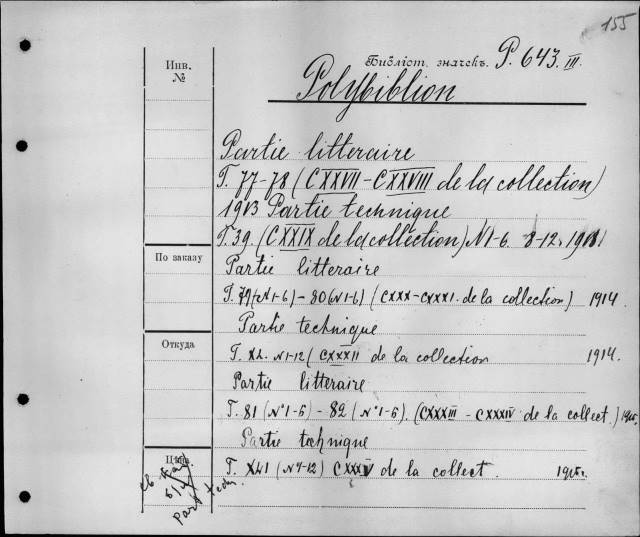 155
Инв. №
Библіот. значекъ. P. 643. III.
Polybiblion
Partie litteraire
T. 77-78 (CXXVII-CXXVIII de la collection)
1913 Partie technique
T. 39. (CXXIX de la collection) N1-6. 8-12,
По заказу
Partie litteraire
T. 79 (N1-6) - 80 (N1-6) (CXXX-CXXXI. de la collection) 1914
Partie technique
Откуда
T. XL. N1-12 (CXXXII de la collection 1914.
Partie litteraire
T. 81 (N°1-6) - 82 (N°1-6). (CXXXIII - CXXXIV de la collect.) 1915.
Partie technique
Цѣна
T. X41 (N1-12) CXXXV de la collect. 1915г.